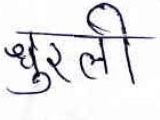 थुरली